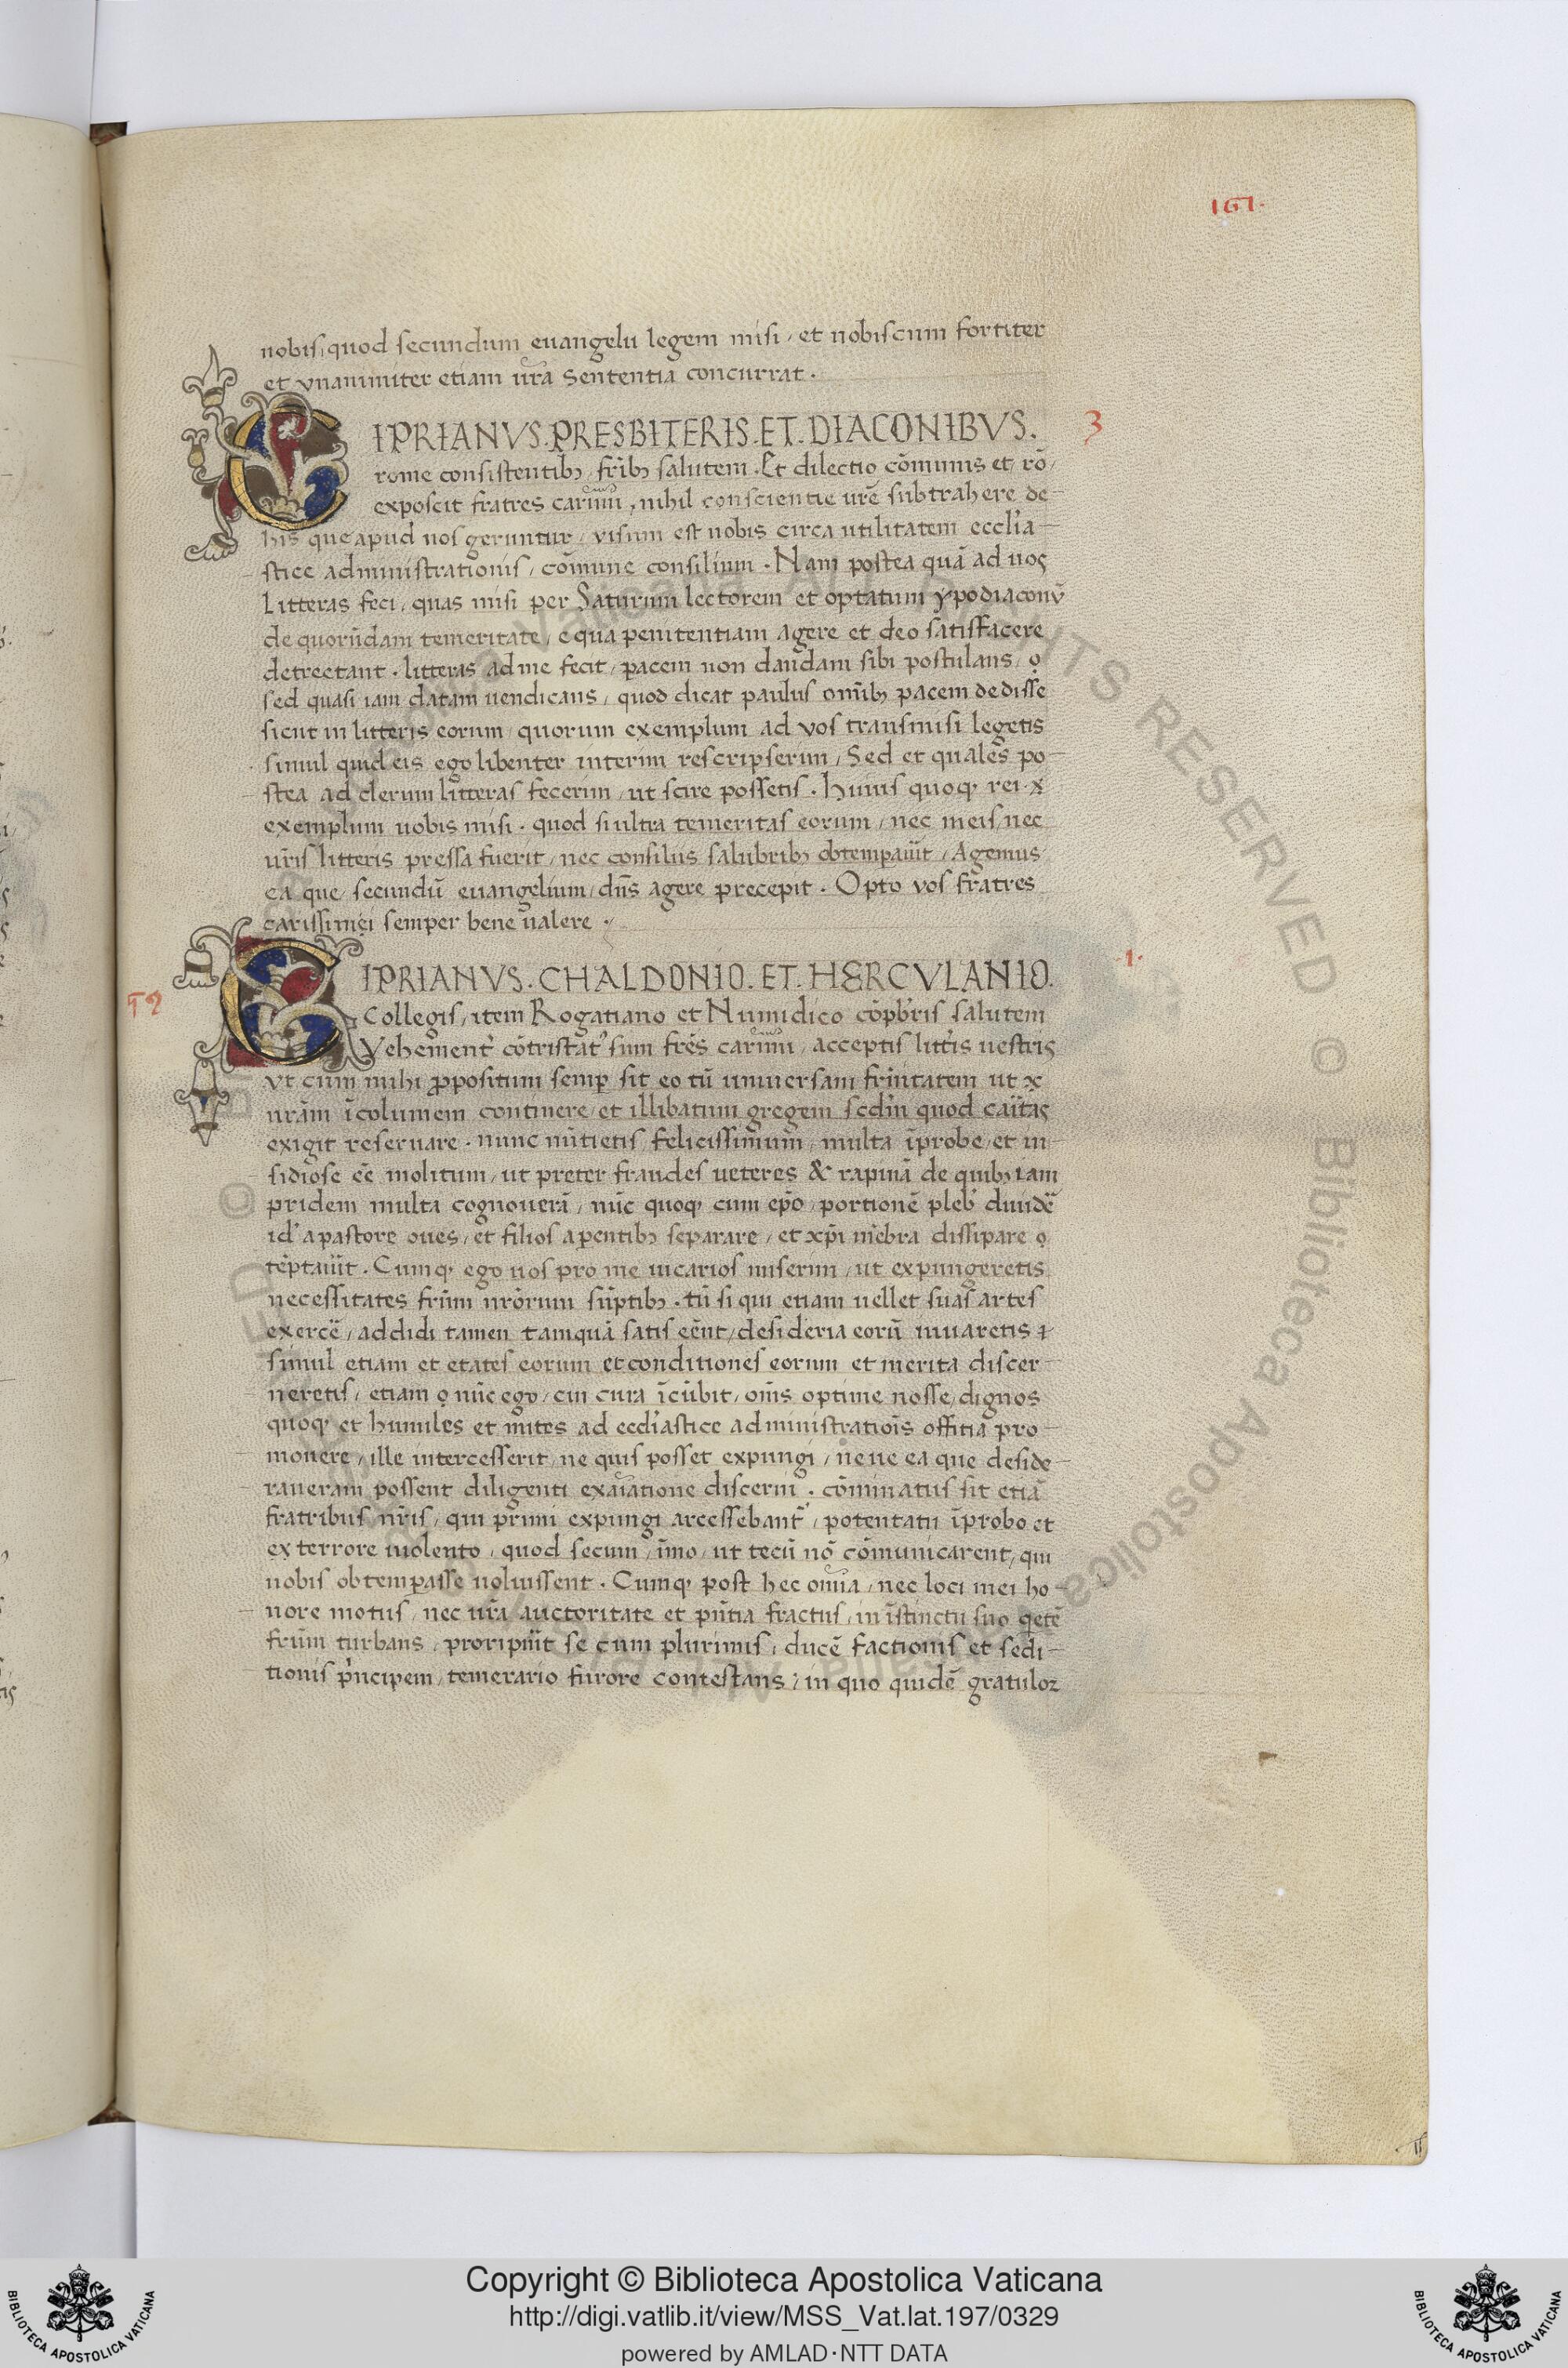 161.
nobis, quod secundum euangelii legem misi, et nobiscum fortiter
et vnanimiter etiam ura̅ sententia concurrat.
CIPRIANVS. PRESBITERIS. ET. DIACONIBVS.
3
rome consistentibꝫ, fr̅ibꝫ salutem. Et dilectio co̅munis et ro̅,
exposcit fratres carimi, nihil conscientie ure̅ subtrahere de-
his que apud nos geruntur, visum est nobis circa utilitatem eccli̅a-
stice administrationis, co̅mune consilium. Nam postea qua̅ ad uos
Litteras feci, quas misi per Saturum lectorem et optatum ypodiaconu̅
de quoru̅dam temeritate, e qua penitentiam agere et deo satisfacere
detrectant. litteras ad me fecit, pacem non dandam sibi postulans,
sed quasi iam datam uendicans, quod dicat paulus omi̅bꝫ pacem dedisse
sicut in litteris eorum, quorum exemplum ad vos transmisi legetis
simul quid eis ego libenter interim rescripserim, Sed et quales po-
stea ad clerum litteras fecerim, ut scire possetis. Huius quoqꝫ rei x
exemplum uobis misi. quod si ultra temeritas eorum, nec meis, nec
uri̅s litteris pressa fuerit, nec consiliis salubribꝫ obtempauit, Agemus
ea que, secundu̅ euangelium, dn̅s agere precepit. Opto vos fratres
carissimi semper bene ualere.
CIPRIANVS. CHALDONIO. ET. HERCVLANIO.
.1.
Collegis, item Rogatiano et Numidico co̅pbr̅is salutem
Vehement̉ co̅tristat᾽ sum fre̅s carimi, acceptis litt̉is uestris
Vt cum mihi ꝓpositum semꝑ sit eo tu̅ uniuersam frn̅itatem ut x
ura̅m i̅columem continere, et illibatum gregem sedm̅ quod caritas
exigit reseruare. nunc nu̅tietis, felicissimum, multa i̅probe, et in-
sidiose ee̅ molitum, ut preter fraudes ueteres & rapina̅ de quibꝫ iam
pridem multa cognouera̅, nu̅c quoqꝫ cum epo̅, portione̅ pleb᾽ diuide̅
id᾽ a pastore oues, et filios a parentibꝫ separare, et xpi̅ me̅bra dissipare
te̅ptauit. Cumqꝫ ego uos pro me uicarios miserim, ut expungeretis
necessitates fru̅m nro̅rum su̅ptibꝫ. tu̅ si qui etiam uellet suas artes
exerce̅, addidi tamen tamqua̅ satis ee̅nt, desideria eoru̅ iuuaretis
simul etiam et etates eorum et conditiones eorum et merita discer-
neretis, etiam nu̅c ego, cui cura i̅cu̅bit, omi̅s optime nosse, dignos
quoqꝫ et humiles et mites ad eccli̅astice administratioi̅s offitia pro-
mouere, ille intercesserit, ne quis posset expungi, neue ea que deside-
raueram possent diligenti exai̅atione discerni. co̅minatus sit etia̅
fratribus nri̅s, qui primi expungi arcessebant̉, potentatu i̅probo et
ex terrore uiolento, quod secum, i̅mo, ut tecu̅ no̅ co̅municarent, qui
nobis obtempasse uoluissent. Cumqꝫ post hec omi̅a, nec loci mei ho-
nore motus, nec ura̅ auctoritate et pn̅tia fractus, in i̅stinctu suo qete̅
fru̅m turbans, proripiuit se cum plurimis, duce̅ factionis et sedi-
tionis pi̅ncipem, temerario furore contestans, in quo quide̅ gratulor
Copyright © Biblioteca Apostolica Vaticana
http://digi.vatlib.it/view/MSS_Vat.lat.197/0329
powered by AMLAD·NTT DATA
BIBLIOTECA APOSTOLICA VATICANA
BIBLIOTECA APOSTOLICA VATICANA